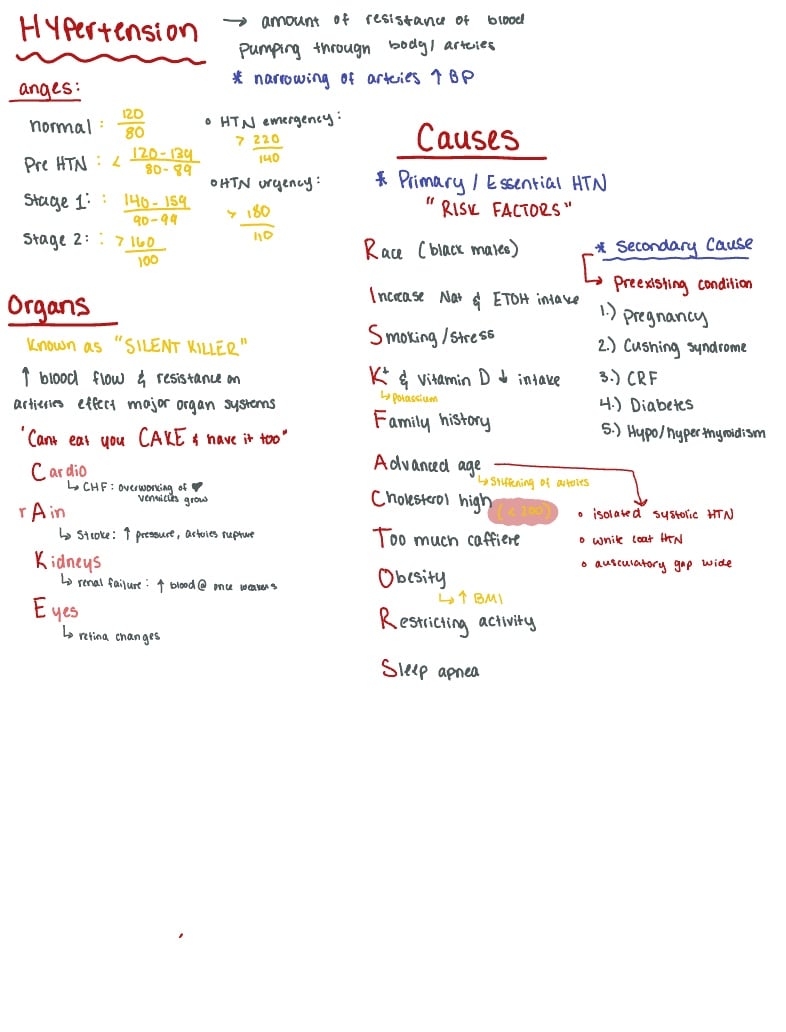 Hypertension
→ amount of resistance of blood
pumping through body/ arteries
* narrowing of arteries ↑ BP
anges:
normal: 120/80
Pre HTN : < 120-139/80-89
Stage 1: : 140-159/90-99
Stage 2: : > 160/100
HTN emergency:
> 220/140
HTN urgency:
> 180/110
Organs
Known as "SILENT KILLER"
↑ blood flow & resistance on
arteries effect major organ systems
"Cant eat you CAKE & have it too"
Cardio
↳ CHF: overworking of ♥
ventricles grow
rAin
↳ Stroke: ↑ pressure, arteries rupture
Kidneys
↳ renal failure: ↑ blood @ once weakens
Eyes
↳ retina changes
Causes
* Primary / Essential HTN
"RISK FACTORS"
Race (black males)
Increase Na+ & ETOH intake
Smoking/Stress
K+ & Vitamin D ↓ intake
↳ Potassium
Family history
Advanced age
↳ Stiffening of arteries
Cholesterol high (< 200)
Too much caffiere
Obesity
↳ ↑ BMI
Restricting activity
Sleep apnea
* Secondary Cause
↳ Preexisting condition
1.) Pregnancy
2.) Cushing syndrome
3.) CRF
4.) Diabetes
5.) Hypo/hyperthyroidism
• isolated systolic HTN
• white coat HTN
• ausculatory gap wide